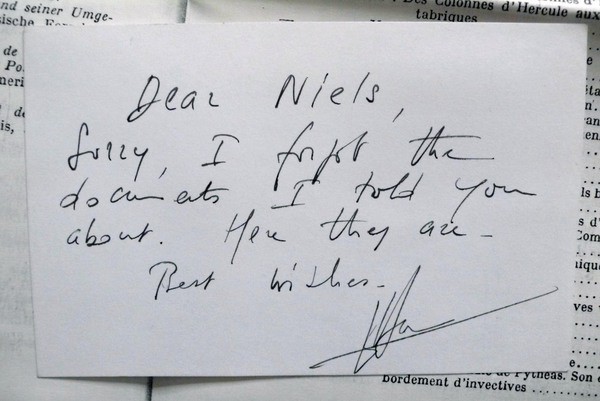 nd seiner Umge-
Des Colonnes d'Hercule aux
tabriques
Dear Niels,
Sorry, I forgot the
documents I told you
about. Here they are –
Best wishes.
de Pythéas. Son
bordement d'invectives